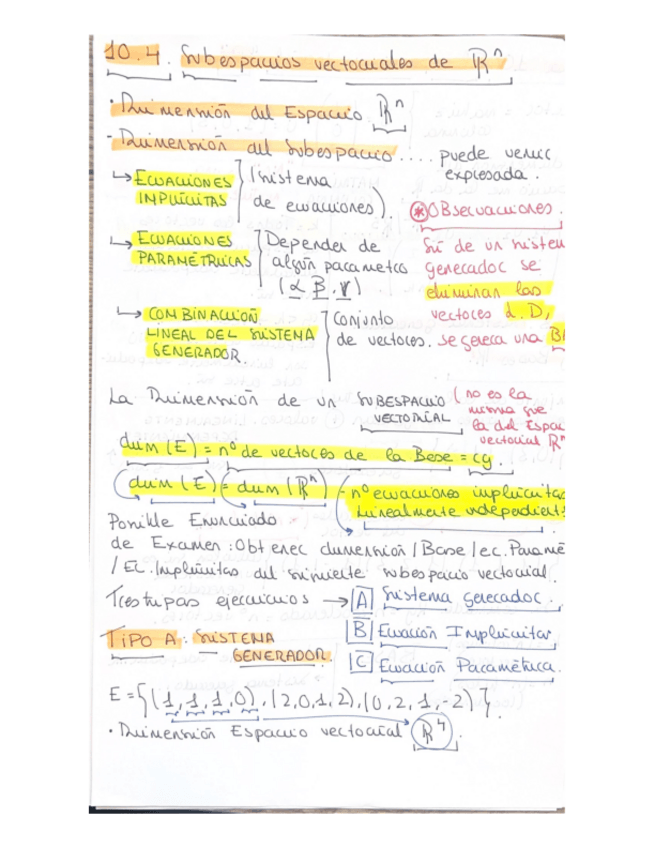 10.4. Subespacios vectoriales de ℝⁿ
· Dimensión del Espacio ℝⁿ
- Dimensión del Subespacio.... puede venir expresada.
↳ ECUACIONES IMPLÍCITAS } (sistema de ecuaciones).
⊛ OBSERVACIONES.
↳ ECUACIONES PARAMÉTRICAS } Depender de algún parametro (α β. γ)
Si de un sistem
generador se
eliminan los
vectores L.D,
se genera una B
↳ COMBINACIÓN LINEAL DEL SISTEMA GENERADOR. } Conjunto de vectores.
La Dimensión de un SUBESPACIO VECTORIAL (no es la
misma que
la del Espac
vectorial ℝⁿ
dim (E) = nº de vectores de la Base = cg.
dim (E) = dim (ℝⁿ) - nº ecuaciones implícitas
Linealmente independient
Posible Enunciado
de Examen: Obtener dimensión / Base / ec. Paramé
/ EC. Implícitas del siguiente subespacio vectorial.
Tres tipos ejercicios → A Sistema generador.
B Ecuación Implícitas.
C Ecuación Paramétrica.
TIPO A: SISTEMA GENERADOR.
E = {(1,1,1,0),(2,0,1,2),(0,2,1,-2)}.
· Dimensión Espacio vectorial ℝ⁴.